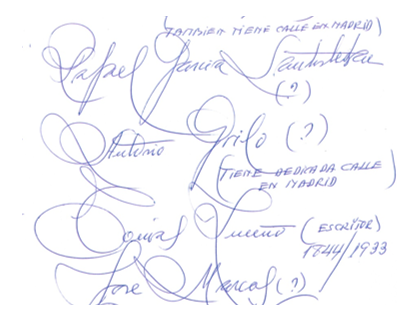 (TAMBIEN TIENE CALLE EN MADRID)
Rafael Garcia Santisteban
(?)
Antonio Grilo (?)
(TIENE DEDICADA CALLE
EN MADRID
)
Tomas Luceño (ESCRITOR)
1844/1933
Jose Marcos (?)